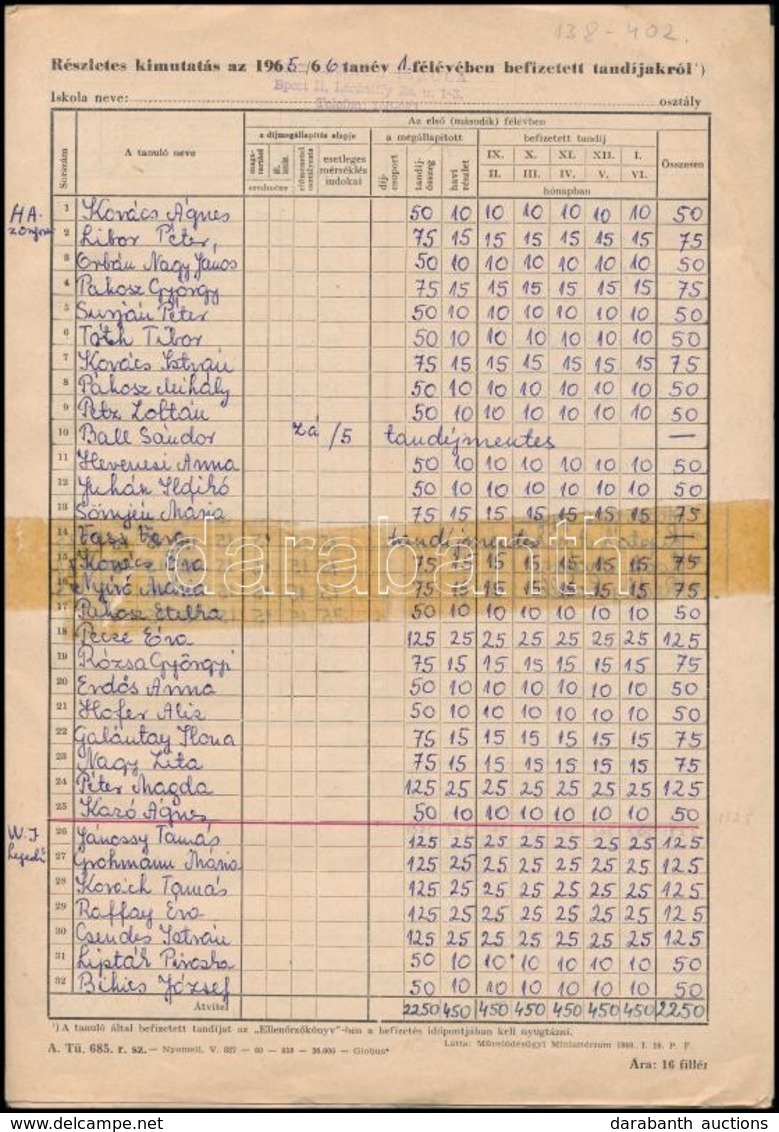 138-402.
Részletes kimutatás az 1965/66 tanév 1. félévében befizetett tandíjakról¹)
Iskola neve: osztály
Sorszám
A tanuló neve
Az első (második) félévben
a díjmegállapítás alapja
a megállapított
befizetett tandíj
Összesen
esetleges mérséklés indokai
díj-csoport
tandíj-összeg
havi részlet
IX. X. XI. XII. I.
II. III. IV. V. VI.
eredmény
hónapban
HA.
zongora
1 Kovács Ágnes 50 10 10 10 10 10 10 50
2 Libor Péter, 75 15 15 15 15 15 15 75
3 Orbán Nagy János 50 10 10 10 10 10 10 50
4 Pakosz György 75 15 15 15 15 15 15 75
5 Surján Péter 50 10 10 10 10 10 10 50
6 Tóth Tibor 50 10 10 10 10 10 10 50
7 Kovács István 75 15 15 15 15 15 15 75
8 Pákosz Mihály 50 10 10 10 10 10 10 50
9 Petz Zoltán 50 10 10 10 10 10 10 50
10 Ball Sándor zá/5 tandíjmentes —
11 Hevenesi Anna 50 10 10 10 10 10 10 50
12 Juhár Ildikó 50 10 10 10 10 10 10 50
13 Sömjén Mária 75 15 15 15 15 15 15 75
14 Éva tandíjmentes —
15 Kovács Éva 75 15 15 15 15 15 15 75
16 Nyírő Mária 75 15 15 15 15 15 15 75
17 Pakosz Etelka 50 10 10 10 10 10 10 50
18 Pecze Éva 125 25 25 25 25 25 25 125
19 Rózsa Györgyi 75 15 15 15 15 15 15 75
20 Erdős Anna 50 10 10 10 10 10 10 50
21 Hofer Aliz 50 10 10 10 10 10 10 50
22 Galántay Ilona 75 15 15 15 15 15 15 75
23 Nagy Zita 75 15 15 15 15 15 15 75
24 Péter Magda 125 25 25 25 25 25 25 125
25 Kazó Ágnes 50 10 10 10 10 10 10 50
W.J
hegedű
26 Jánossy Tamás 125 25 25 25 25 25 25 125
27 Grohmann Mária 125 25 25 25 25 25 25 125
28 Kovách Tamás 125 25 25 25 25 25 25 125
29 Raffay Éva 125 25 25 25 25 25 25 125
30 Csendes István 125 25 25 25 25 25 25 125
31 Lipták Piroska 50 10 10 10 10 10 10 50
32 Bihics József 50 10 10 10 10 10 10 50
Átvitel 2250 450 450 450 450 450 450 2250
¹) A tanuló által befizetett tandíjat az „Ellenőrzőkönyv"-ben a befizetés időpontjában kell nyugtázni.
A. Tü. 685. r. sz. — Nyomell. V. 827 — 60 — 36.000 — Globus* Látta: Művelődésügyi Minisztérium 1960. I. 16. P. F
Ára: 16 fillér
darabanth
darabanth auctions